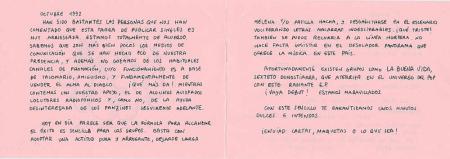 OCTUBRE 1993
HAN SIDO BASTANTES LAS PERSONAS QUE NOS HAN
COMENTADO QUE ESTA TAREA DE PUBLICAR SINGLES ES
MUY ARRIESGADA. ESTAMOS TOTALMENTE DE ACUERDO.
SABEMOS QUE SON MÁS BIEN POCOS LOS MEDIOS DE
COMUNICACIÓN QUE SE HAN HECHO ECO DE NUESTRA
PRESENCIA, Y ADEMÁS NO GOZAMOS DE LOS HABITUALES
CANALES DE PROMOCIÓN, CUYO FUNCIONAMIENTO ES A BASE
DE TALONARIO, AMIGUISMO, Y FUNDAMENTALMENTE DE
VENDER EL ALMA AL DIABLO. ¡QUÉ MÁS DA! MIENTRAS
CONTEMOS CON VUESTRO APOYO, EL DE ALGUNOS AVISPADOS
LOCUTORES RADIOFÓNICOS Y, CÓMO NO, DE LA AYUDA
DESINTERESADA DE LOS FANZINES SEGUIREMOS ADELANTE.
HOY EN DÍA PARECE SER QUE LA FÓRMULA PARA ALCANZAR
EL ÉXITO ES SENCILLA PARA LOS GRUPOS. BASTA CON
ADOPTAR UNA ACTITUD DURA Y ARROGANTE, DEJARSE LARGA
MELENA Y/O PATILLA HACHA, Y DESGAÑITARSE EN EL ESCENARIO
VOCIFERANDO LETRAS INDESCIFRABLES. ¡QUÉ TRISTE!
TAMBIÉN SE PUEDE RECURRIR A LA LÍNEA GUERRERA. NO
HACE FALTA INSISTIR EN EL DESOLADOR PANORAMA QUE
OFRECE LA MÚSICA EN ESTE PAÍS.
AFORTUNADAMENTE EXISTEN GRUPOS COMO LA BUENA VIDA,
SEXTETO DONOSTIARRA, QUE ATERRIZA EN EL UNIVERSO DEL POP
CON ESTE BRILLANTE E.P.
¡VAYA DEBUT! ESTAMOS MARAVILLADOS
CON ESTE SENCILLO TE GARANTIZAMOS UNOS MINUTOS
DULCES E INTENSOS.
¡ENVIAD CARTAS, MAQUETAS O LO QUE SEA!